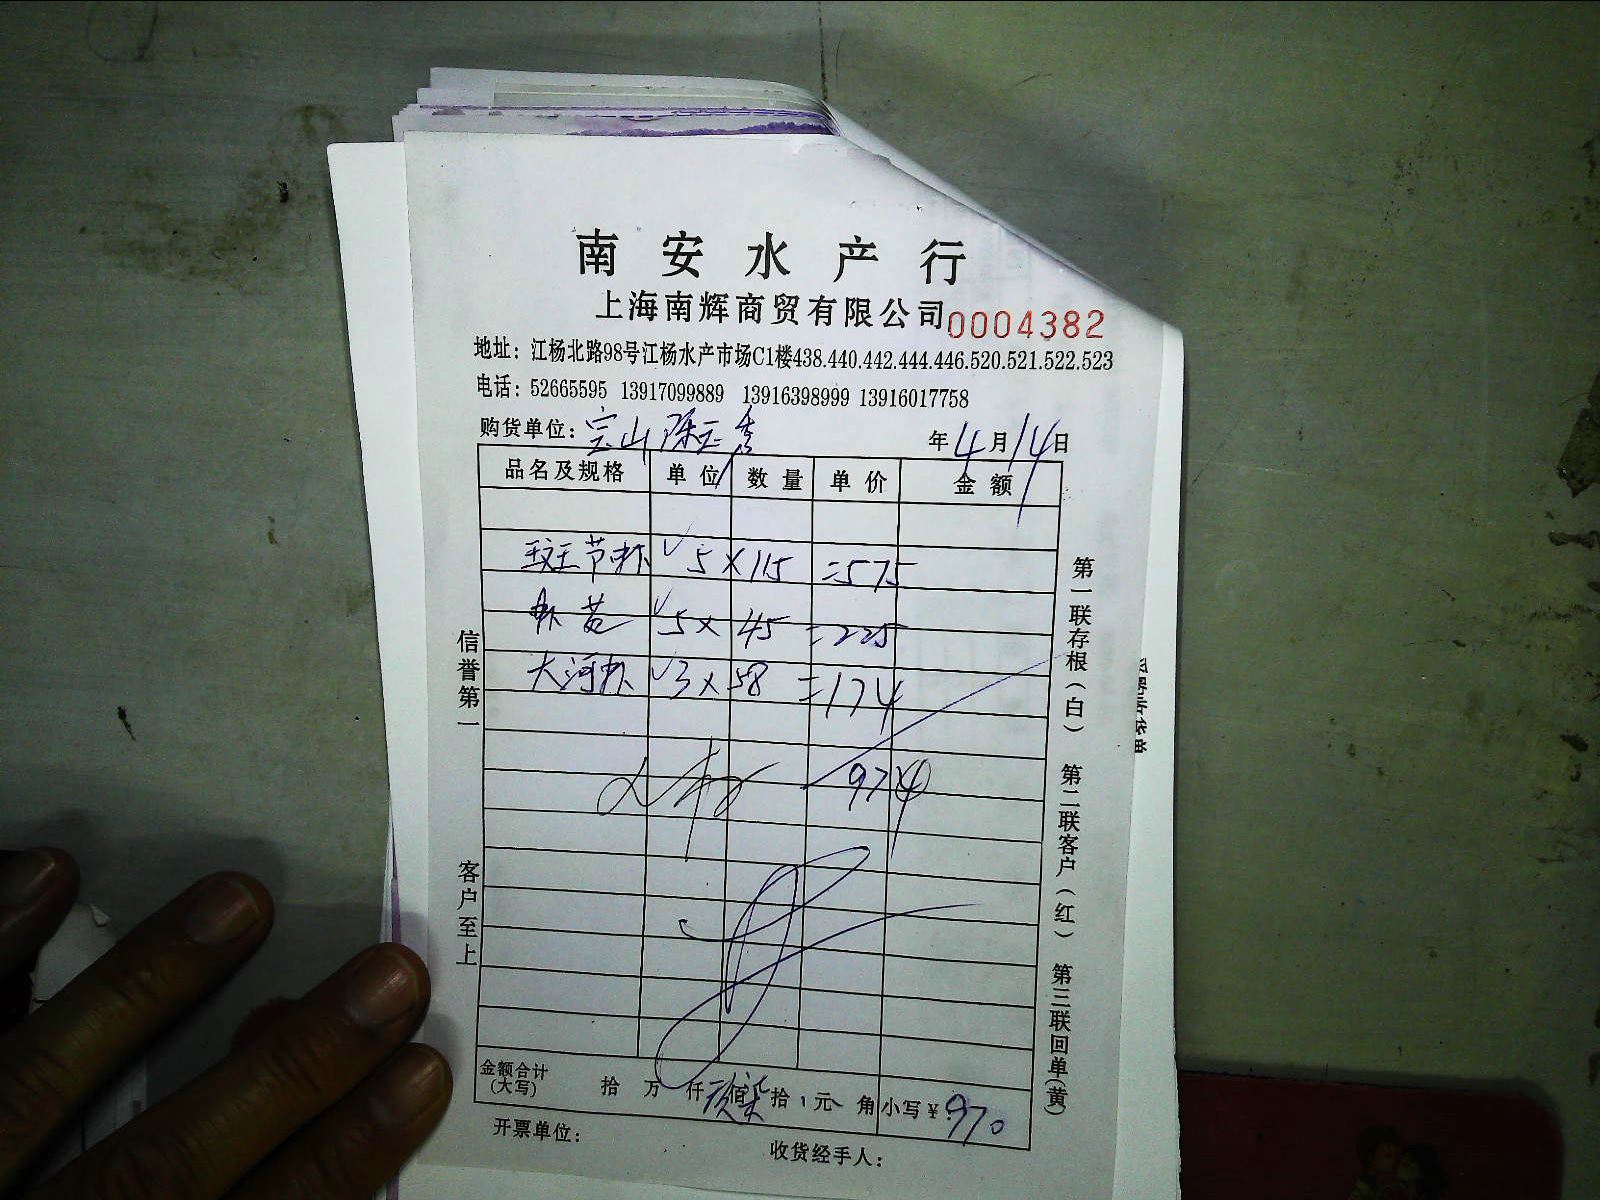 南安水产行
上海南辉商贸有限公司 0004382
地址：江杨北路98号江杨水产市场C1楼438.440.442.444.446.520.521.522.523
电话：52665595 13917099889 13916398999 13916017758
购货单位：宝山陈玉秀 年4月14日
品名及规格 单位 数量 单价 金额
斑节虾 √5×115=575
虾黄 √5×45=225
大河虾 √3×58=174
974
金额合计(大写) 拾 万 仟 佰柒拾 元 角 小写¥:970
开票单位：
收货经手人：
信誉第一
客户至上
第一联存根(白) 第二联客户(红) 第三联回单(黄)